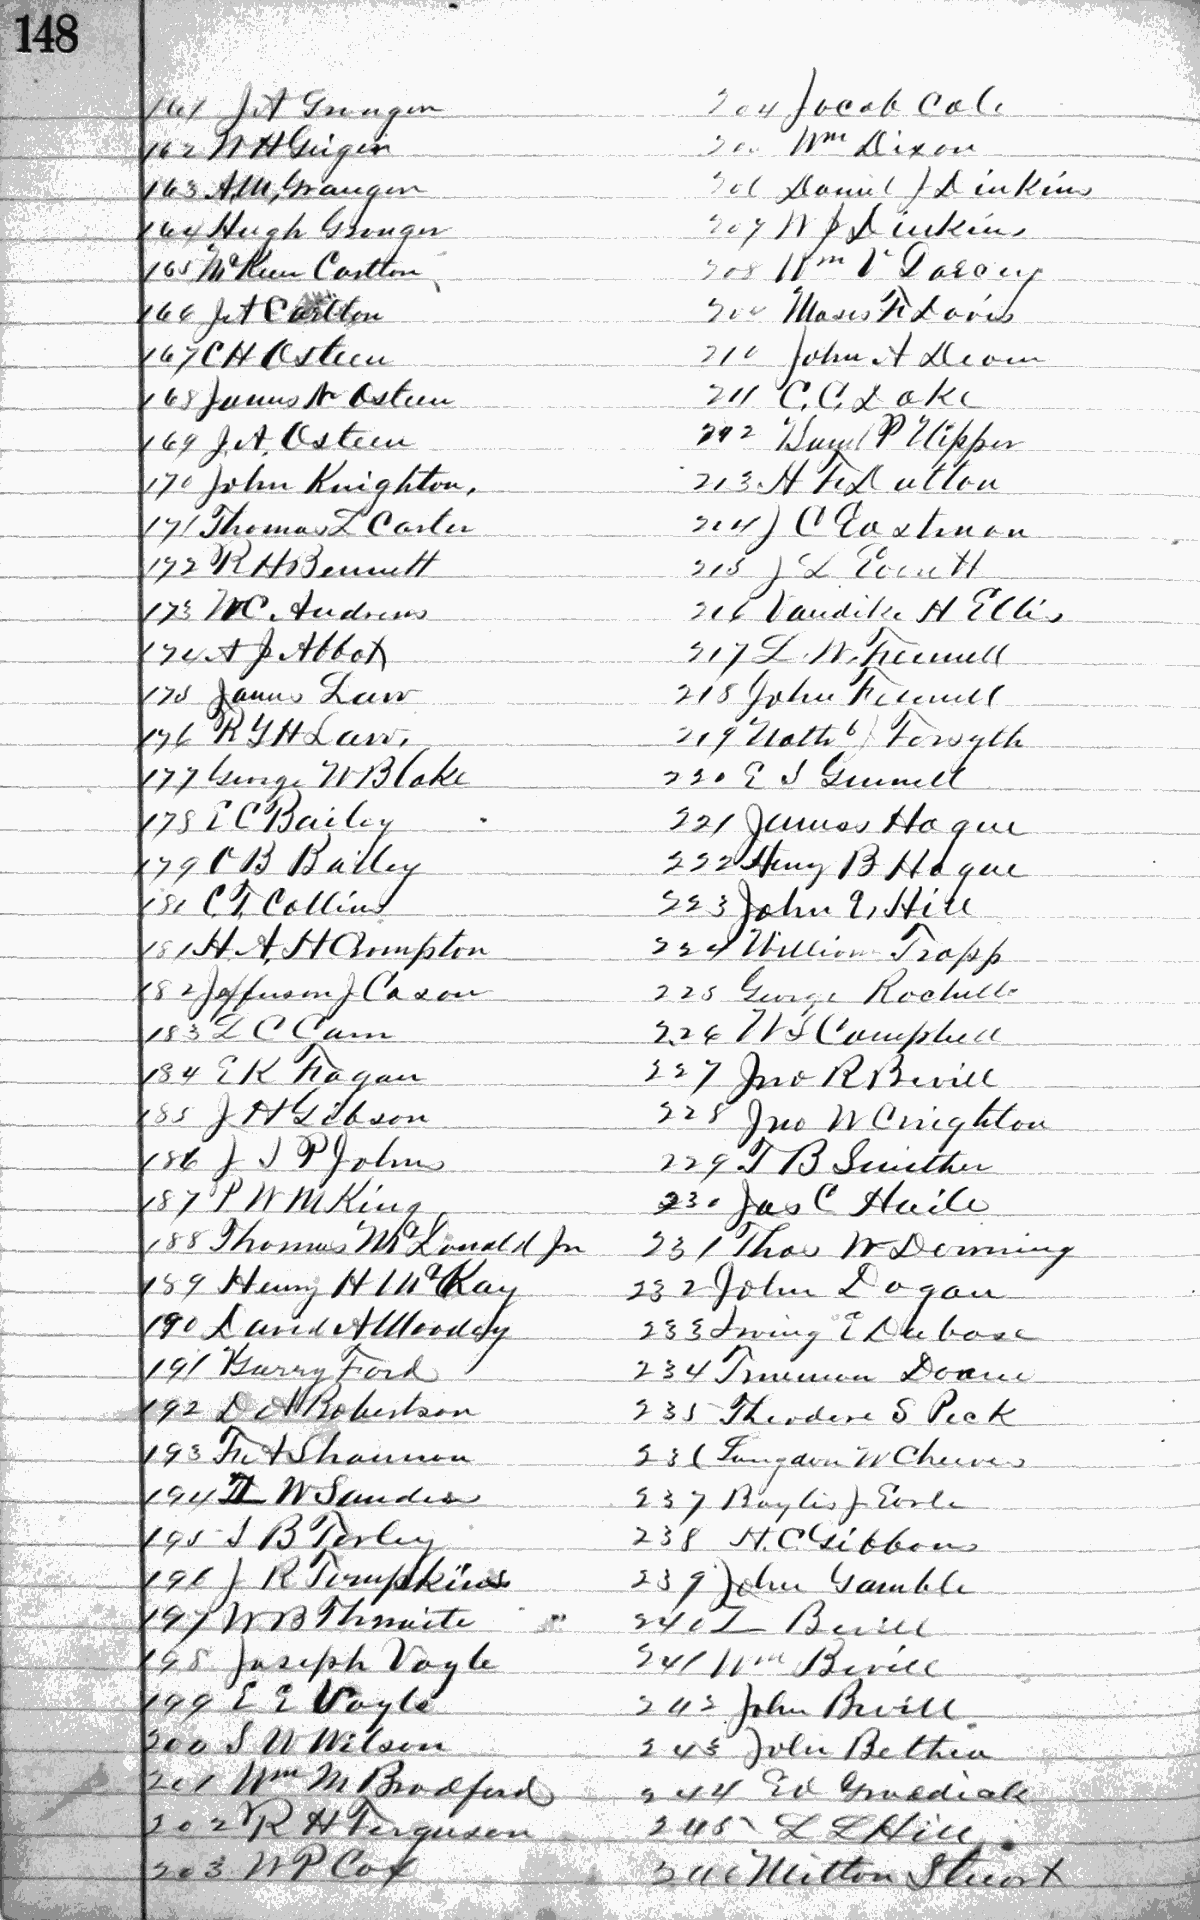 148
161 J A Granger
162 W H Geiger
163 A, M, Granger
164 Hugh Granger
165 McKeen Carlton
166 J. A Carlton
167 C H Osteen
168 James N Osteen
169 J. A. Osteen
170 John Knighton,
171 Thomas L Carter
172 R H Bennett
173 W C. Andrews
174 A J Abbot
175 James Law
176 R G H Law,
177 George W Blake
178 E C Bailey
179 O B Bailey
180 C. T. Collins
181 H. A. H Crompton
182 Jefferson J Cason
183 L C Cam
184 E K Fagan
185 J H Gibson
186 J S P Johns
187 P W M King
188 Thomas McDonald Jr
189 Henry H McKay
190 David A Moody
191 Barry Ford
192 D A Robertson
193 F. A Shannon
194 W Sanders
195 S B Torley
196 J R Tompkins
197 W B Thwaite
198 Joseph Vogle
199 E E Vogle
200 S W Wilson
201 Wm M Bradford
202 R H Ferguson
203 W P Cox
204 Jacob Cole
205 Wm Dixon
206 Daniel J Dinkins
207 W J Dinkins
208 Wm V Darcey
209 Moses F Davis
210 John A Dean
211 C. C. Dake
212 P Nipper
213 H F. Dutton
214 J C Eastman
215 J L Everett
216 Vandike H Ellis
217 L. W. Fennell
218 John Fennell
219 Forsyth
220 E S Gunnell
221 James Hague
222 Henry B Hague
223 John Q, Hill
224 William Trapp
225 George Rochelle
226 W S Campbell
227 Jno R Bevill
228 Jno W Creighton
229 T B Smither
230 Jas C Haile
231 Thos W Downing
232 John Dogan
233 Irving E Dubose
234 Trueman Doane
235 Theodore S Peck
236 Langdon W Cheeves
237 Baylis J Earle
238 H. C Gibbons
239 John Gamble
240 L Bevill
241 Wm Bevill
242 John Bevill.
243 John Bethea
244 Ed
245 L L Hill
246 Milton Stuart